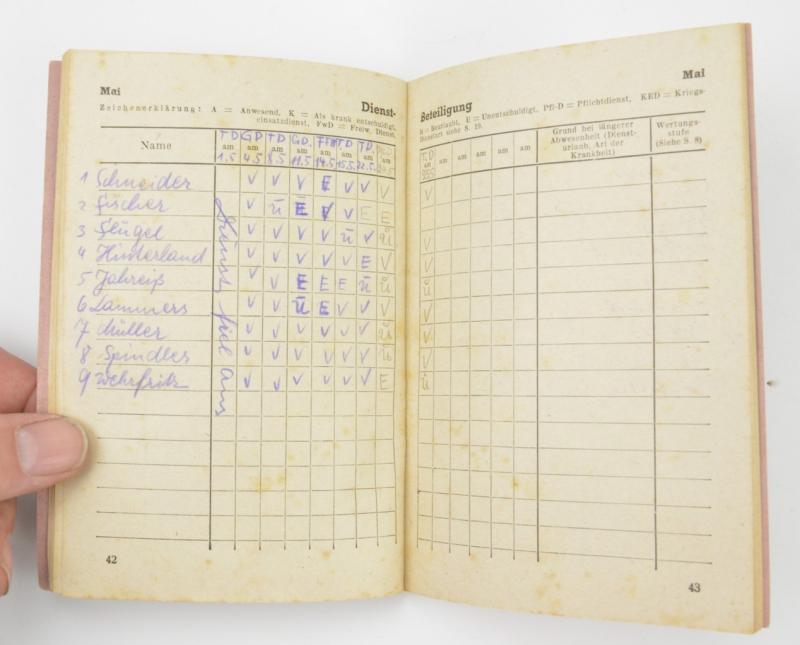 Mai
Dienst-
Zeichenerklärung: A = Anwesend, K = Als krank entschuldigt,
einsatzdienst, FwD = Freiw. Dienst,
Name
TD GD TD GD. TD TD.
am am am am am am am am
1.5 4.5 8.5 11.5 14.5 15.5 22.5
Dienst fiel aus
1 Schneider v v v E v v v
2 Fischer v ü E E v E E
3 Flügel v v v v ü v ü
4 Hinterland v v v v v E v
5 Jahreiß v v E E E ü ü
6 Lammers v v ü E v v v
7 Müller v v v v v v ü
8 Spindler v v v v v v ü
9 Wehrfritz v v v v v v E
42
Mai
Beteiligung
B = Beurlaubt, U = Unentschuldigt, Pfl-D = Pflichtdienst, KED = Kriegs-
Dienstart siehe S. 19.
T.D
am am am am am am
Grund bei längerer
Abwesenheit (Dienst-
urlaub, Art der
Krankheit)
Wertungs-
stufe
(Siehe S. 8)
v
v
v
ü
v
v
v
ü
43